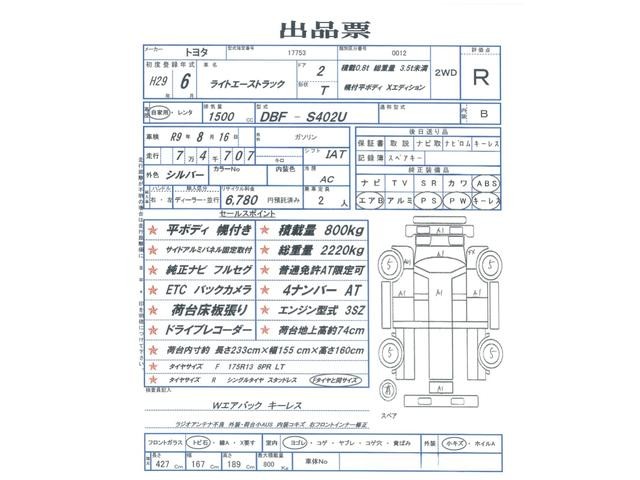 出品票
メーカー トヨタ 型式指定番号 17753 類別区分番号 0012 評価点
初度登録年式 H29年 6月 車名 ライトエーストラック ドア 2 形状 T 積載0.8t 総重量 3.5t未満 幌付平ボディ Xエディション 2WD R
車歴 自家用・レンタ 排気量 1500 CC 型式 DBF - S402U 通称型式 内装 B
車検 R9年 8月 16日 燃料 ガソリン
走行 7万4千707 キロ シフト IAT
外色 シルバー カラーNo 内装色 冷房 AC
ハンドル 右・左 輸入区分 ディーラー・並行 リサイクル料金 6,780 円預託済み 乗車定員 2人
後日送り品
保証書 取説 ナビ取 ナビロム キーレス
記録簿 スペアキー
純正装備品
ナビ TV SR カワ ABS
エアB アルミ PS PW キーレス
セールスポイント
★ 平ボディ 幌付き ★ 積載量 800kg
★ サイドアルミパネル固定取付 ★ 総重量 2220kg
★ 純正ナビ フルセグ ★ 普通免許AT限定可
★ ETC バックカメラ ★ 4ナンバー AT
★ 荷台床板張り ★ エンジン型式 3SZ
★ ドライブレコーダー ★ 荷台地上高約74cm
★ 荷台内寸約 長さ233cm×幅155cm×高さ160cm
★ タイヤサイズ F 175R13 8PR LT
★ タイヤサイズ R シングルタイヤ スタッドレス Fタイヤと同サイズ
検査員記入
Wエアバック キーレス
ラジオアンテナ不良 外装・荷台小AUS 内装コキズ 右フロントインナー修正
スペア
フロントガラス トビ石・線A・X要す 室内 ヨゴレ・コゲ・ヤブレ・コゲ穴・黄ばみ 外装 小キズ・ホイルA
長さ 427 Cm 幅 167 Cm 高さ 189 Cm 最大積載量 800 Kg 車体No